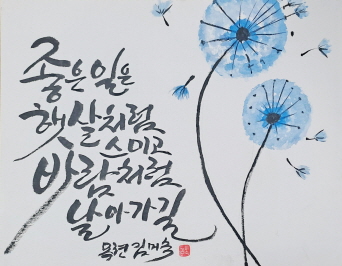 좋은 일은
햇살처럼
스미고
바람처럼
날아가길
목련 김미숙